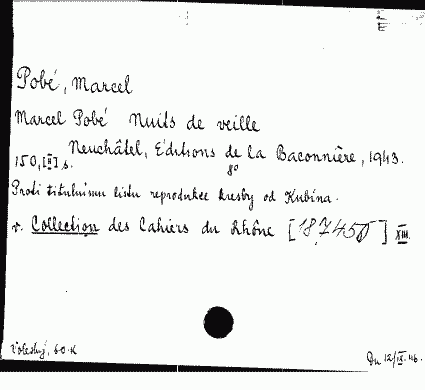 Pobé, Marcel
Marcel Pobé Nuits de veille
Neuchâtel, Editions de la Baconnière, 1943.
150, [II] s. 8º
Proti titulnímu listu reprodukce kresby od Kubína.
v. Collection des Cahiers du Rhône [187455] XIII.
60 K
Du 12/IX. 46.